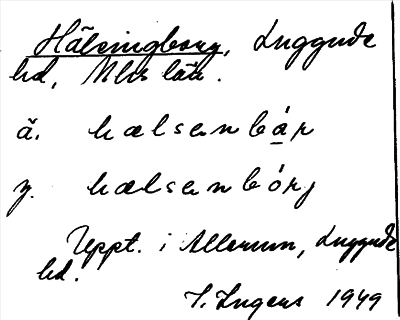 Hälsingborg, Luggude
hd, Mlhs län.
ä. hælsenbår
y. hælsenbórj
Uppt. i Allerum, Luggude
hd.
I. Ingers 1949